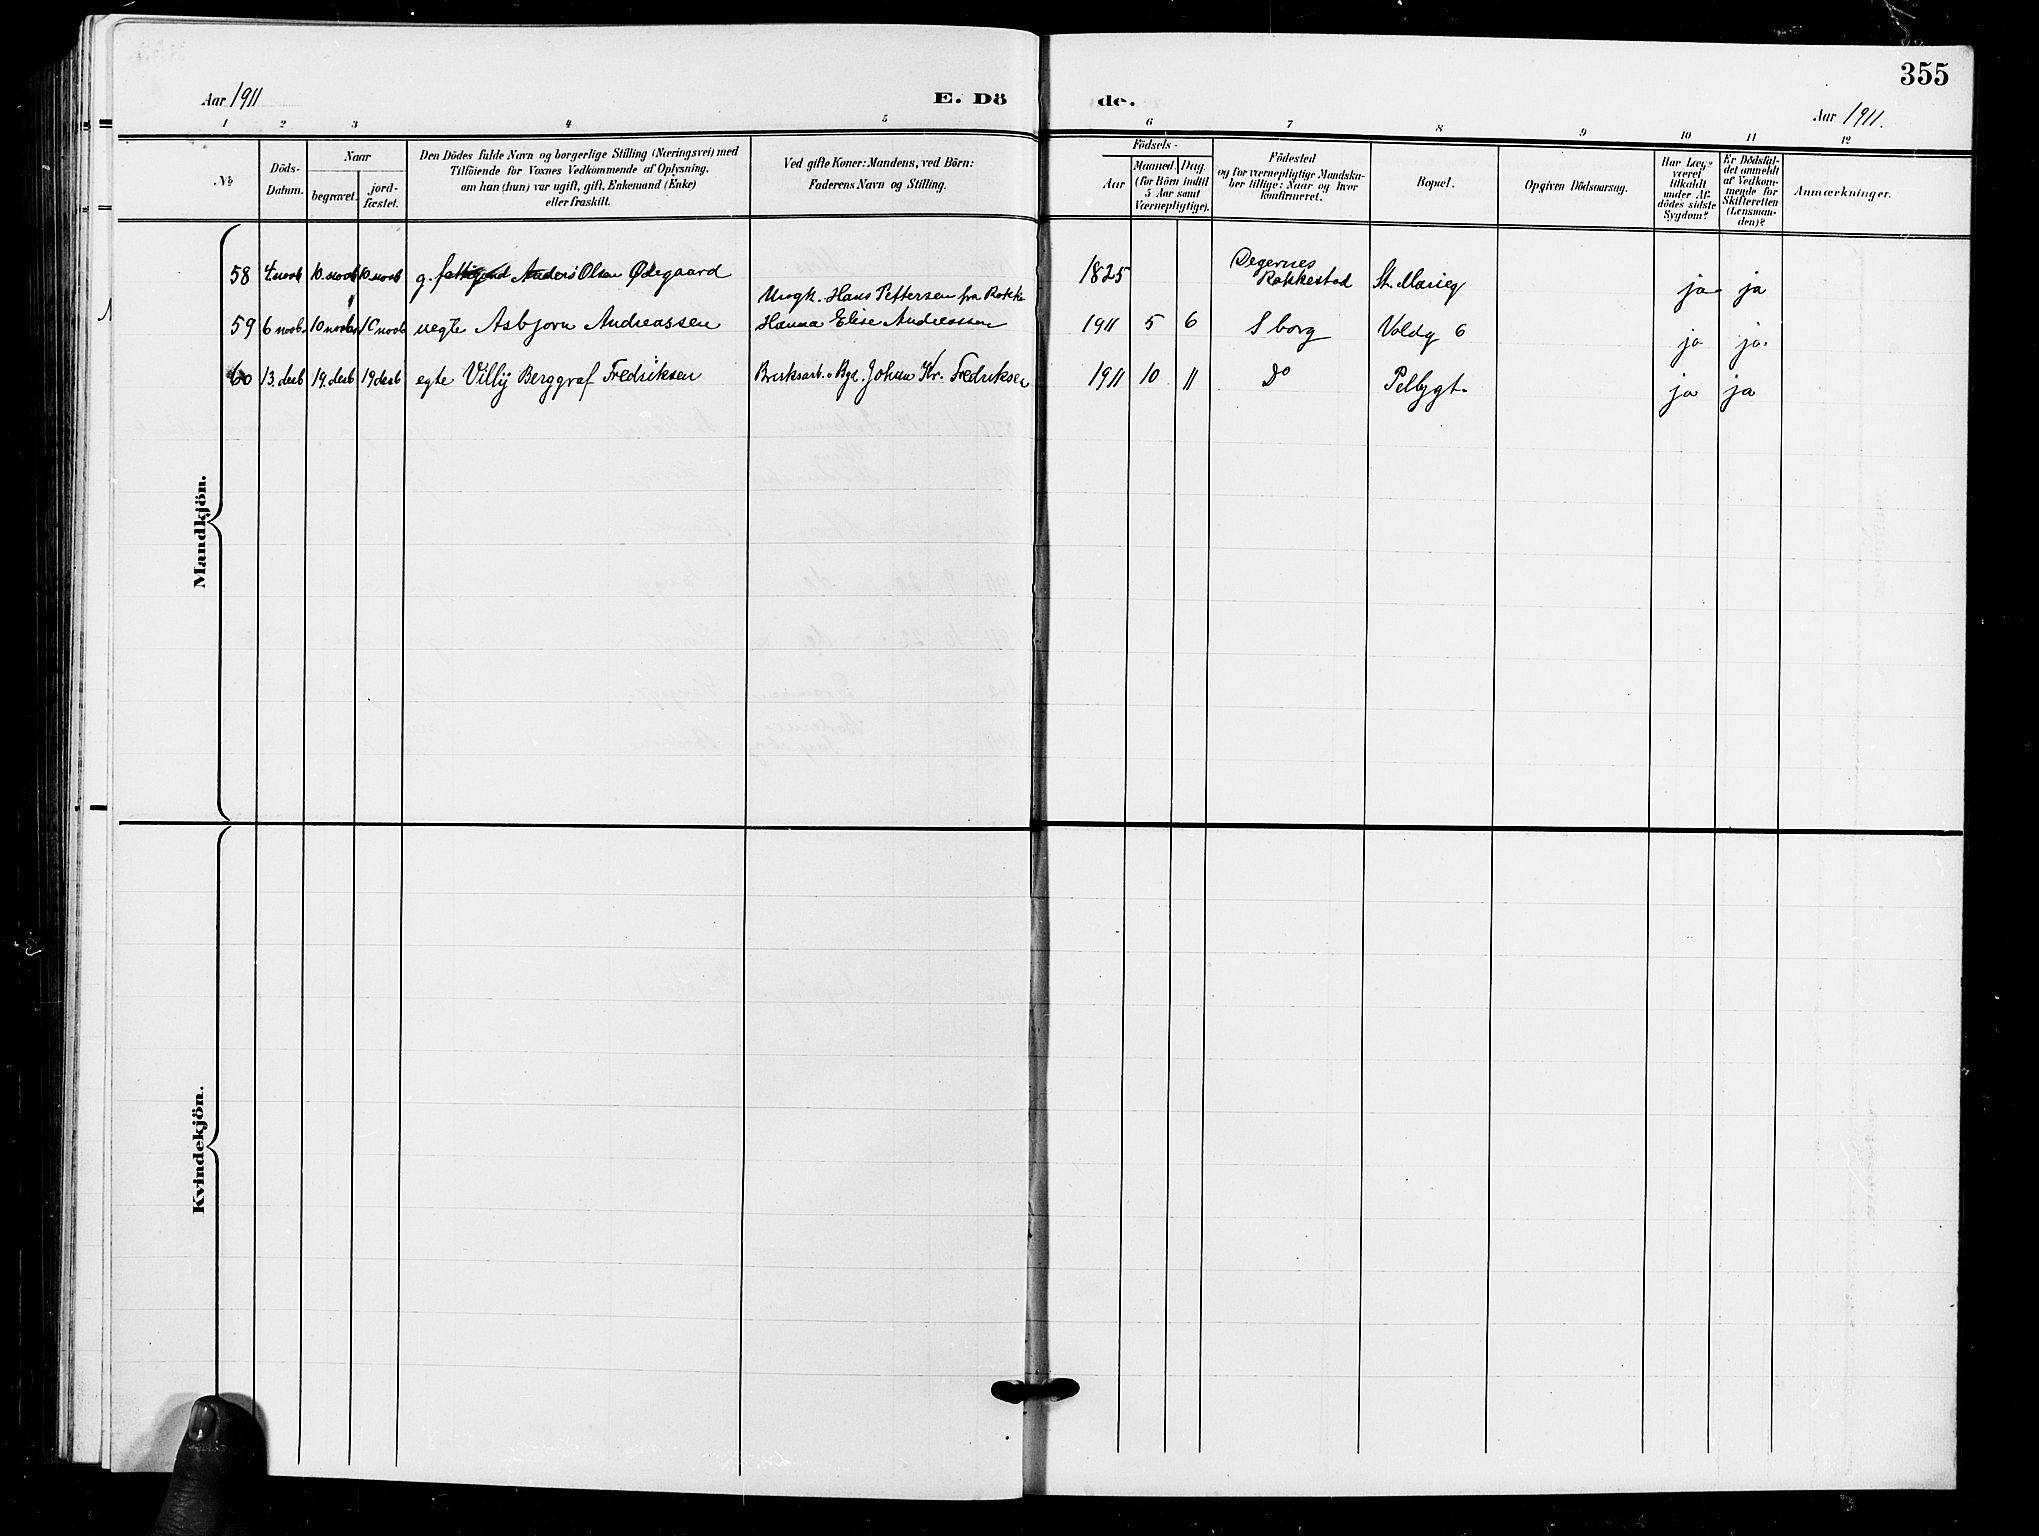 355
Aar 1911
E. Dö
de.
Aar 1911.
1 2 3 4 5 6 7 8 9 10 11 12
№
Döds-
Datum.
Naar
begravet.
jord-
fæstet.
Den Dödes fulde Navn og borgerlige Stilling (Næringsvei) med
Tilföiende for Voxnes Vedkommende af Oplysning,
om han (hun) var ugift, gift, Enkemand (Enke)
eller fraskilt.
Ved gifte Koner: Mandens, ved Börn:
Faderens Navn og Stilling.
Födsels-
Aar
Maaned. Dag.
(for Börn indtil
5 Aar samt
Værnepligtige).
Födested
og for værnepligtige Mandska-
ber tillige: Naar og hvor
konfirmeret.
Bopæl.
Opgiven Dödsaarsag.
Har Læge
været
tilkaldt
under Af-
dödes sidste
Sygdom?
Er Dödsfal-
det anmeldt
af Vedkom-
mende for
Skifteretten
(Lensman-
den)?
Anmærkninger.
Mandkjön.
58 4 novb 10. novb 10. novb g. Anders Olsen Ødegaard 1825 Degernes Rakkestad St. Marieg ja ja
Ungk. Hans Pettersen fra Rakk
59 6 novb. 10 novb 10 novb uegte Asbjørn Andreassen Hanna Elise Andreassen 1911 5 6 S borg Voldg 6 ja ja.
60 13. desb 19. desb 19 desb egte Villy Berggraf Fredriksen Bruksarb. Bgd. Johan Kr. Fredriksen 1911 10 11 Do Pelbygt. ja ja
Kvindekjön.